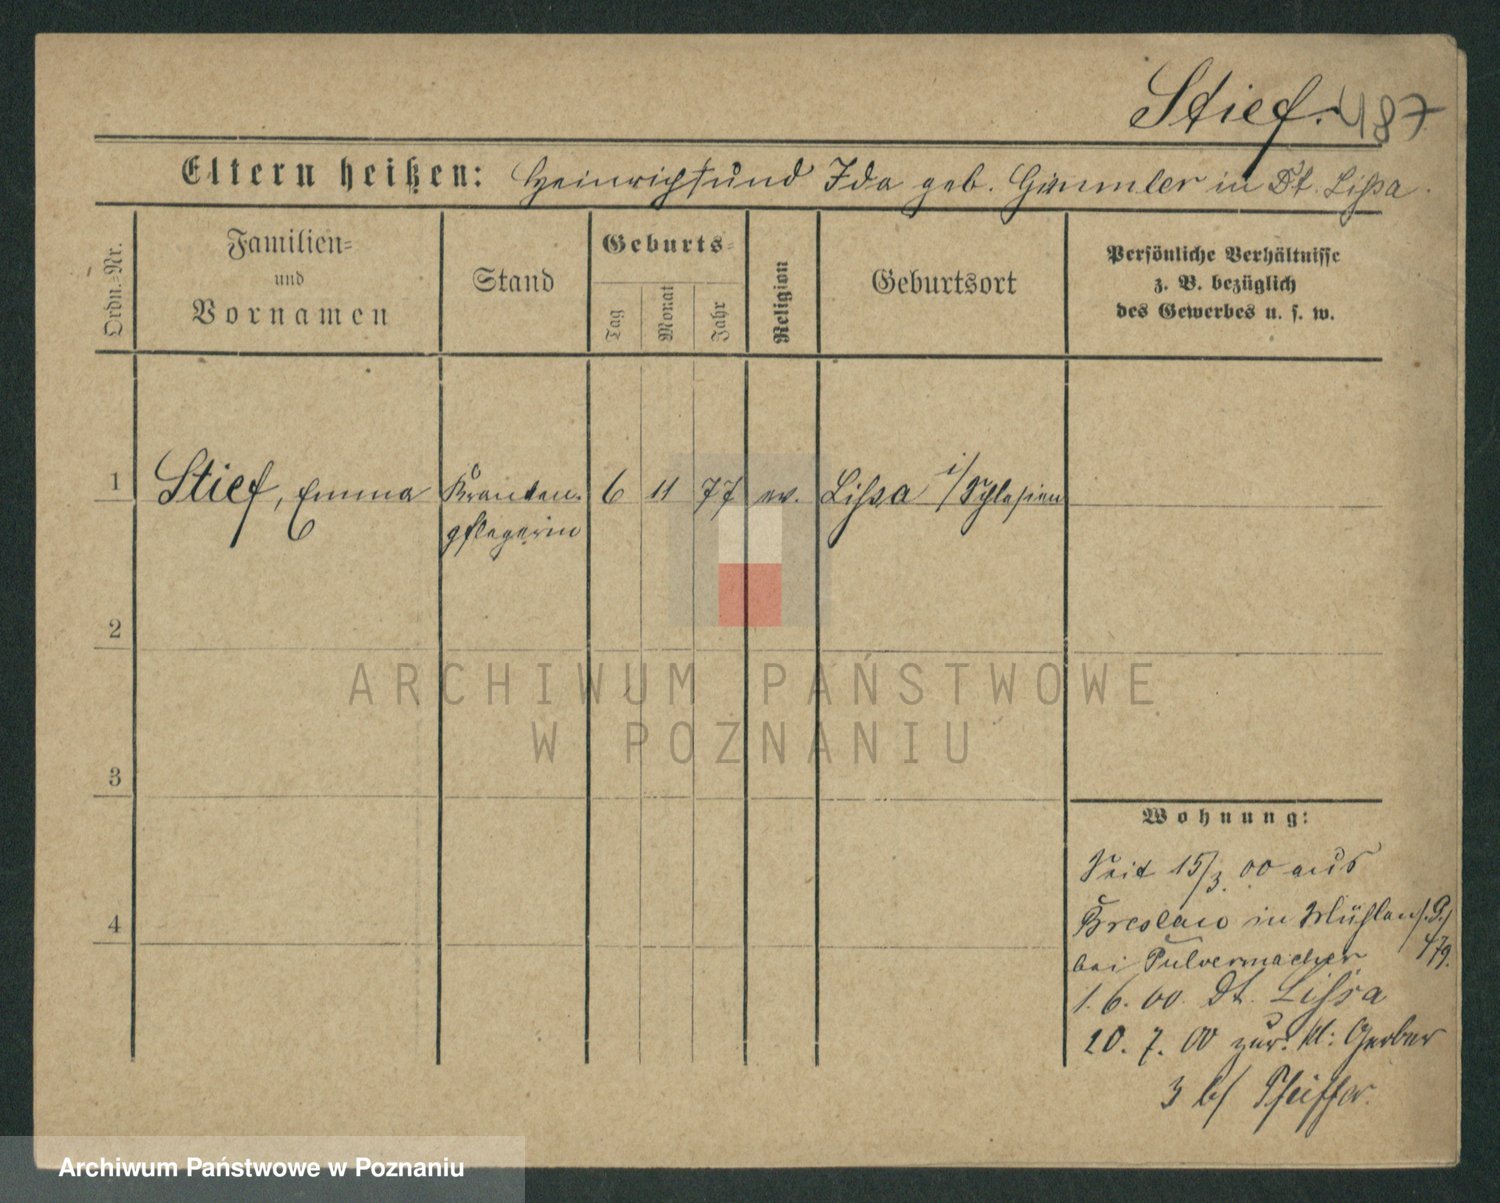 Stief. 487
Eltern heißen: Heinrich und Ida geb. Gümmler in Dt. Lissa.
Ordn.-Nr.
Familien-
und
Vornamen
Stand
Geburts-
Tag
Monat
Jahr
Religion
Geburtsort
Persönliche Verhältnisse
z. B. bezüglich
des Gewerbes u. s. w.
1 Stief, Emma Kranken- 6 11 77 ev. Lissa i/Schlesien
pflegerin
2
3
4
Wohnung:
Seit 15/3. 00 aus
Breslau in Mühlenstr.
bei Pulvermacher
1. 6. 00. Dt. Lissa
20. 7. 00 zur. Kl: Gerber
3 b/ Pfeiffer.
ARCHIWUM PAŃSTWOWE
W POZNANIU
Archiwum Państwowe w Poznaniu